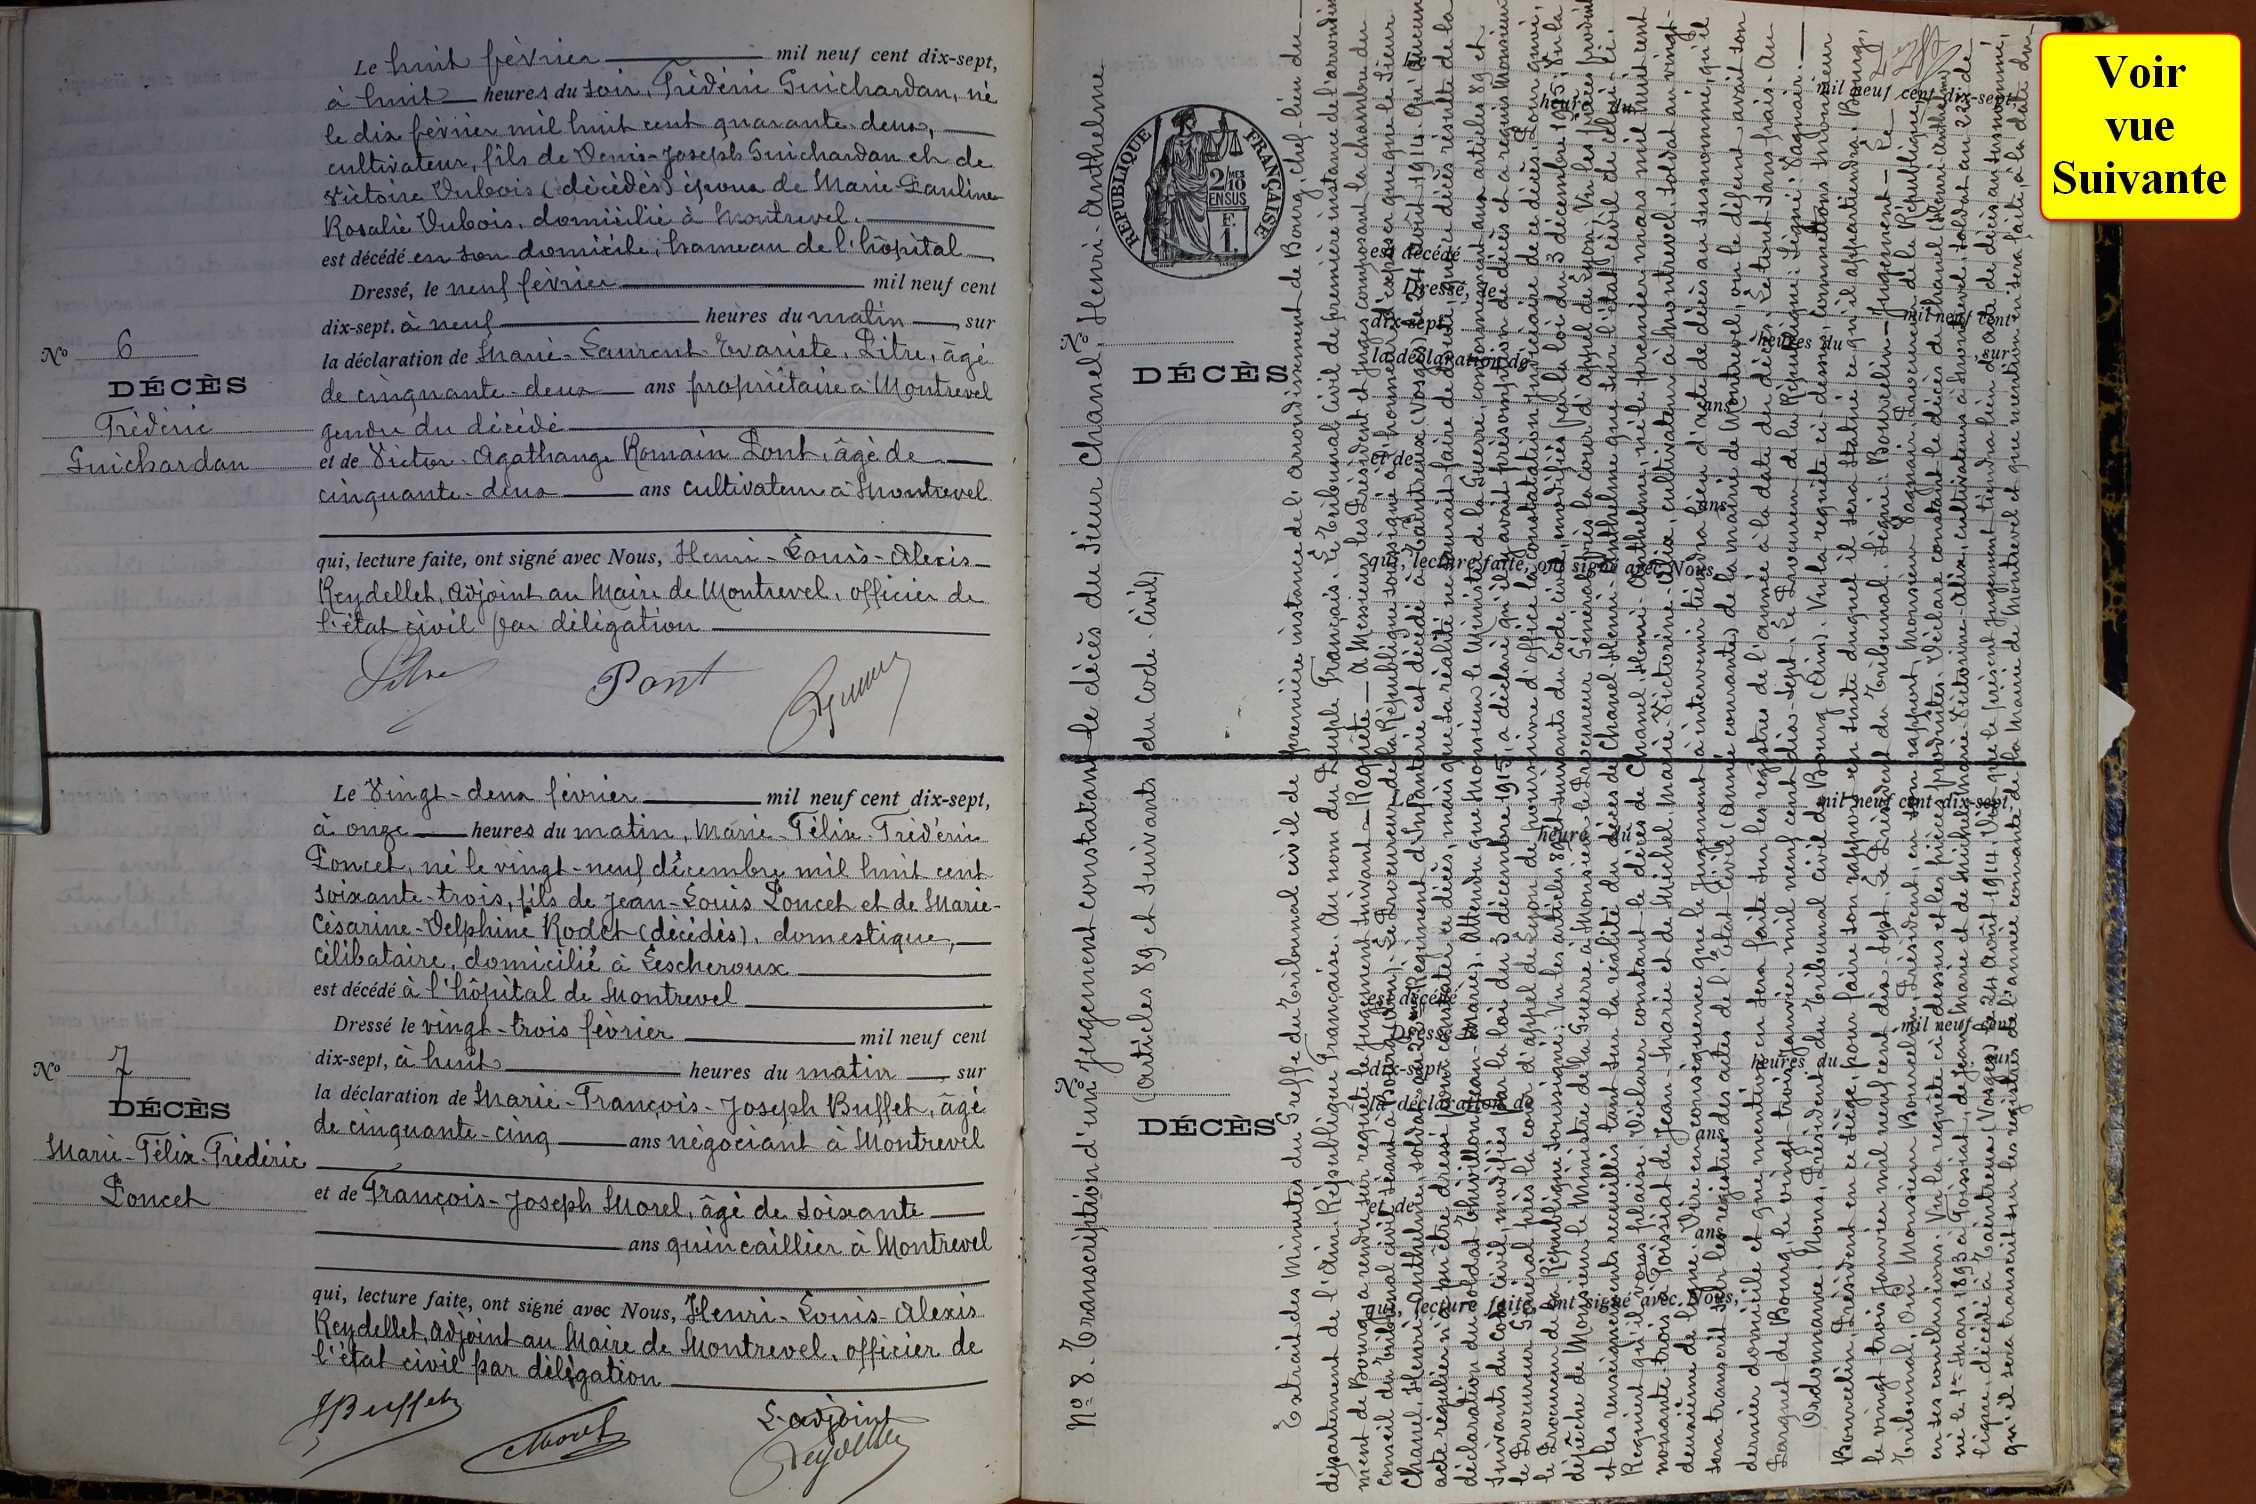 Le huit février mil neuf cent dix-sept,
à huit heures du soir, Frédéric Guichardan, né
le dix février mil huit cent quarante-deux,
cultivateur, fils de Denis-Joseph Guichardan et de
Victoire Dubois (décédés) époux de Marie-Pauline
Rosalie Dubois, domicilié à Montrevel.
est décédé en son domicile, hameau de l'hôpital
Dressé, le neuf février mil neuf cent
dix-sept, à neuf heures du matin, sur
la déclaration de Marie-Laurent-Evariste, Pitre, âgé
de cinquante-deux ans propriétaire à Montrevel
gendre du décédé
et de Victor-Agathange Romain Pont, âgé de
cinquante-deux ans cultivateur à Montrevel
qui, lecture faite, ont signé avec Nous, Henri-Louis-Alexis
Reydellet, adjoint au Maire de Montrevel, officier de
l'état civil par délégation
Pitre Pont
No 6
DÉCÈS
Frédéric
Guichardan
Le vingt-deux février mil neuf cent dix-sept,
à onze heures du matin, Marie-Félix-Frédéric
Poncet, né le vingt-neuf décembre mil huit cent
soixante-trois, fils de Jean-Louis Poncet et de Marie-
Césarine-Delphine Rodet (décédés), domestique,
célibataire, domicilié à Lescheroux
est décédé à l'hôpital de Montrevel
Dressé le vingt-trois février mil neuf cent
dix-sept, à huit heures du matin, sur
la déclaration de Marie-François-Joseph Buffet, âgé
de cinquante-cinq ans négociant à Montrevel
et de François-Joseph Morel, âgé de soixante
ans quincaillier à Montrevel
qui, lecture faite, ont signé avec Nous, Henri-Louis-Alexis
Reydellet, adjoint au Maire de Montrevel, officier de
l'état civil par délégation
JBuffet Morel L'adjoint
Reydellet
No 7
DÉCÈS
Marie-Félix-Frédéric
Poncet
No 8. Transcription d'un Jugement constatant le décès du sieur Chanel, Henri-Anthelme
(articles 89 et suivants du Code Civil)
RÉPUBLIQUE FRANÇAISE
2/10 MES
EN SUS
F.
1.
No
DÉCÈS
No
DÉCÈS
Extrait des Minutes du Greffe du Tribunal civil de première instance de l'arrondissement de Bourg, chef-lieu du
département de l'Ain. République Française. Au nom du Peuple Français. Le Tribunal Civil de première instance de l'arrondisse
ment de Bourg a rendu sur requête le jugement suivant. Requête. A Messieurs les Président et Juges composant la chambre du
conseil du Tribunal civil séant à Bourg (Ain). Le Procureur de la République soussigné a l'honneur d'exposer que le sieur
Chanel, Henri Anthelme, soldat au 23me Régiment d'Infanterie est décédé à Taintreux (Vosges) le 24 août 1914. Qu'aucun
acte régulier n'a pu être dressé pour constater ce décès, mais que sa réalité ne saurait faire de doute; que ce décès résulte de la
déclaration du soldat Thévillon (Jean-Marie). Attendu que Monsieur le Ministre de la Guerre, conformément aux articles 89 et
suivants du Code civil, modifiés par la loi du 3 décembre 1915, a déclaré qu'il y avait présomption de décès et a requis Monsieur
le Procureur Général près la Cour d'appel de Lyon de poursuivre d'office la constatation judiciaire de ce décès. Pour quoi,
le Procureur de la République soussigné: Vu les articles 89 et suivants du Code civil, modifiés par la loi du 3 décembre 1915; Vu la
dépêche de Monsieur le Ministre de la Guerre à Monsieur le Procureur Général près la Cour d'appel de Lyon; Vu les pièces produites
et les renseignements recueillis tant sur la réalité du décès de Chanel Henri-Anthelme que sur l'état civil de celui-ci.
Requiert qu'il vous plaise: Déclarer constant le décès de Chanel, Henri-Anthelme, né le premier mars mil huit cent
nonante-trois à Foissiat de Jean-Marie et de Michel, Marie-Victorine-Alix, cultivateur à Montrevel, soldat au vingt-
deuxième de ligne. Dire en conséquence que le jugement à intervenir tiendra lieu d'acte de décès au susnommé, qu'il
sera transcrit sur les registres des actes de l'état civil (année courante) de la mairie de Montrevel, où le défunt avait son
dernier domicile et que mention en sera faite sur les registres de l'année à la date du décès. Le tout sans frais. Au
Parquet de Bourg, le vingt-trois Janvier mil neuf cent dix-sept. Le Procureur de la République: Signé: Pagnair.
Ordonnance. Nous, Président du Tribunal civil de Bourg (Ain). Vu la requête ci-dessus, commettons Monsieur
Bourcelin, Président en ce siège, pour faire son rapport, en suite duquel il sera statué ce qu'il appartiendra. Bourg,
le vingt-trois Janvier mil neuf cent dix sept. Le Président du Tribunal. Signé: Bourcelin. Jugement. Le
Tribunal, Ouï Monsieur Bourcelin, Président, en son rapport, Monsieur Pagnair, Procureur de la République,
en ses conclusions. Vu la requête ci-dessus et les pièces produites. Déclare constant le décès de Chanel (Henri Anthelme)
né le 1er Mars 1893 à Foissiat, de Jean Marie et de Michel Marie-Victorine-Alix, cultivateur à Montrevel, soldat au 23e de
ligne, décédé à Taintreux (Vosges) le 24 Août 1914. Dit que le présent jugement tiendra lieu d'acte de décès au susnommé,
qu'il sera transcrit sur les registres de l'année courante de la Mairie de Montrevel et que mention en sera faite, à la date du
Voir
vue
Suivante